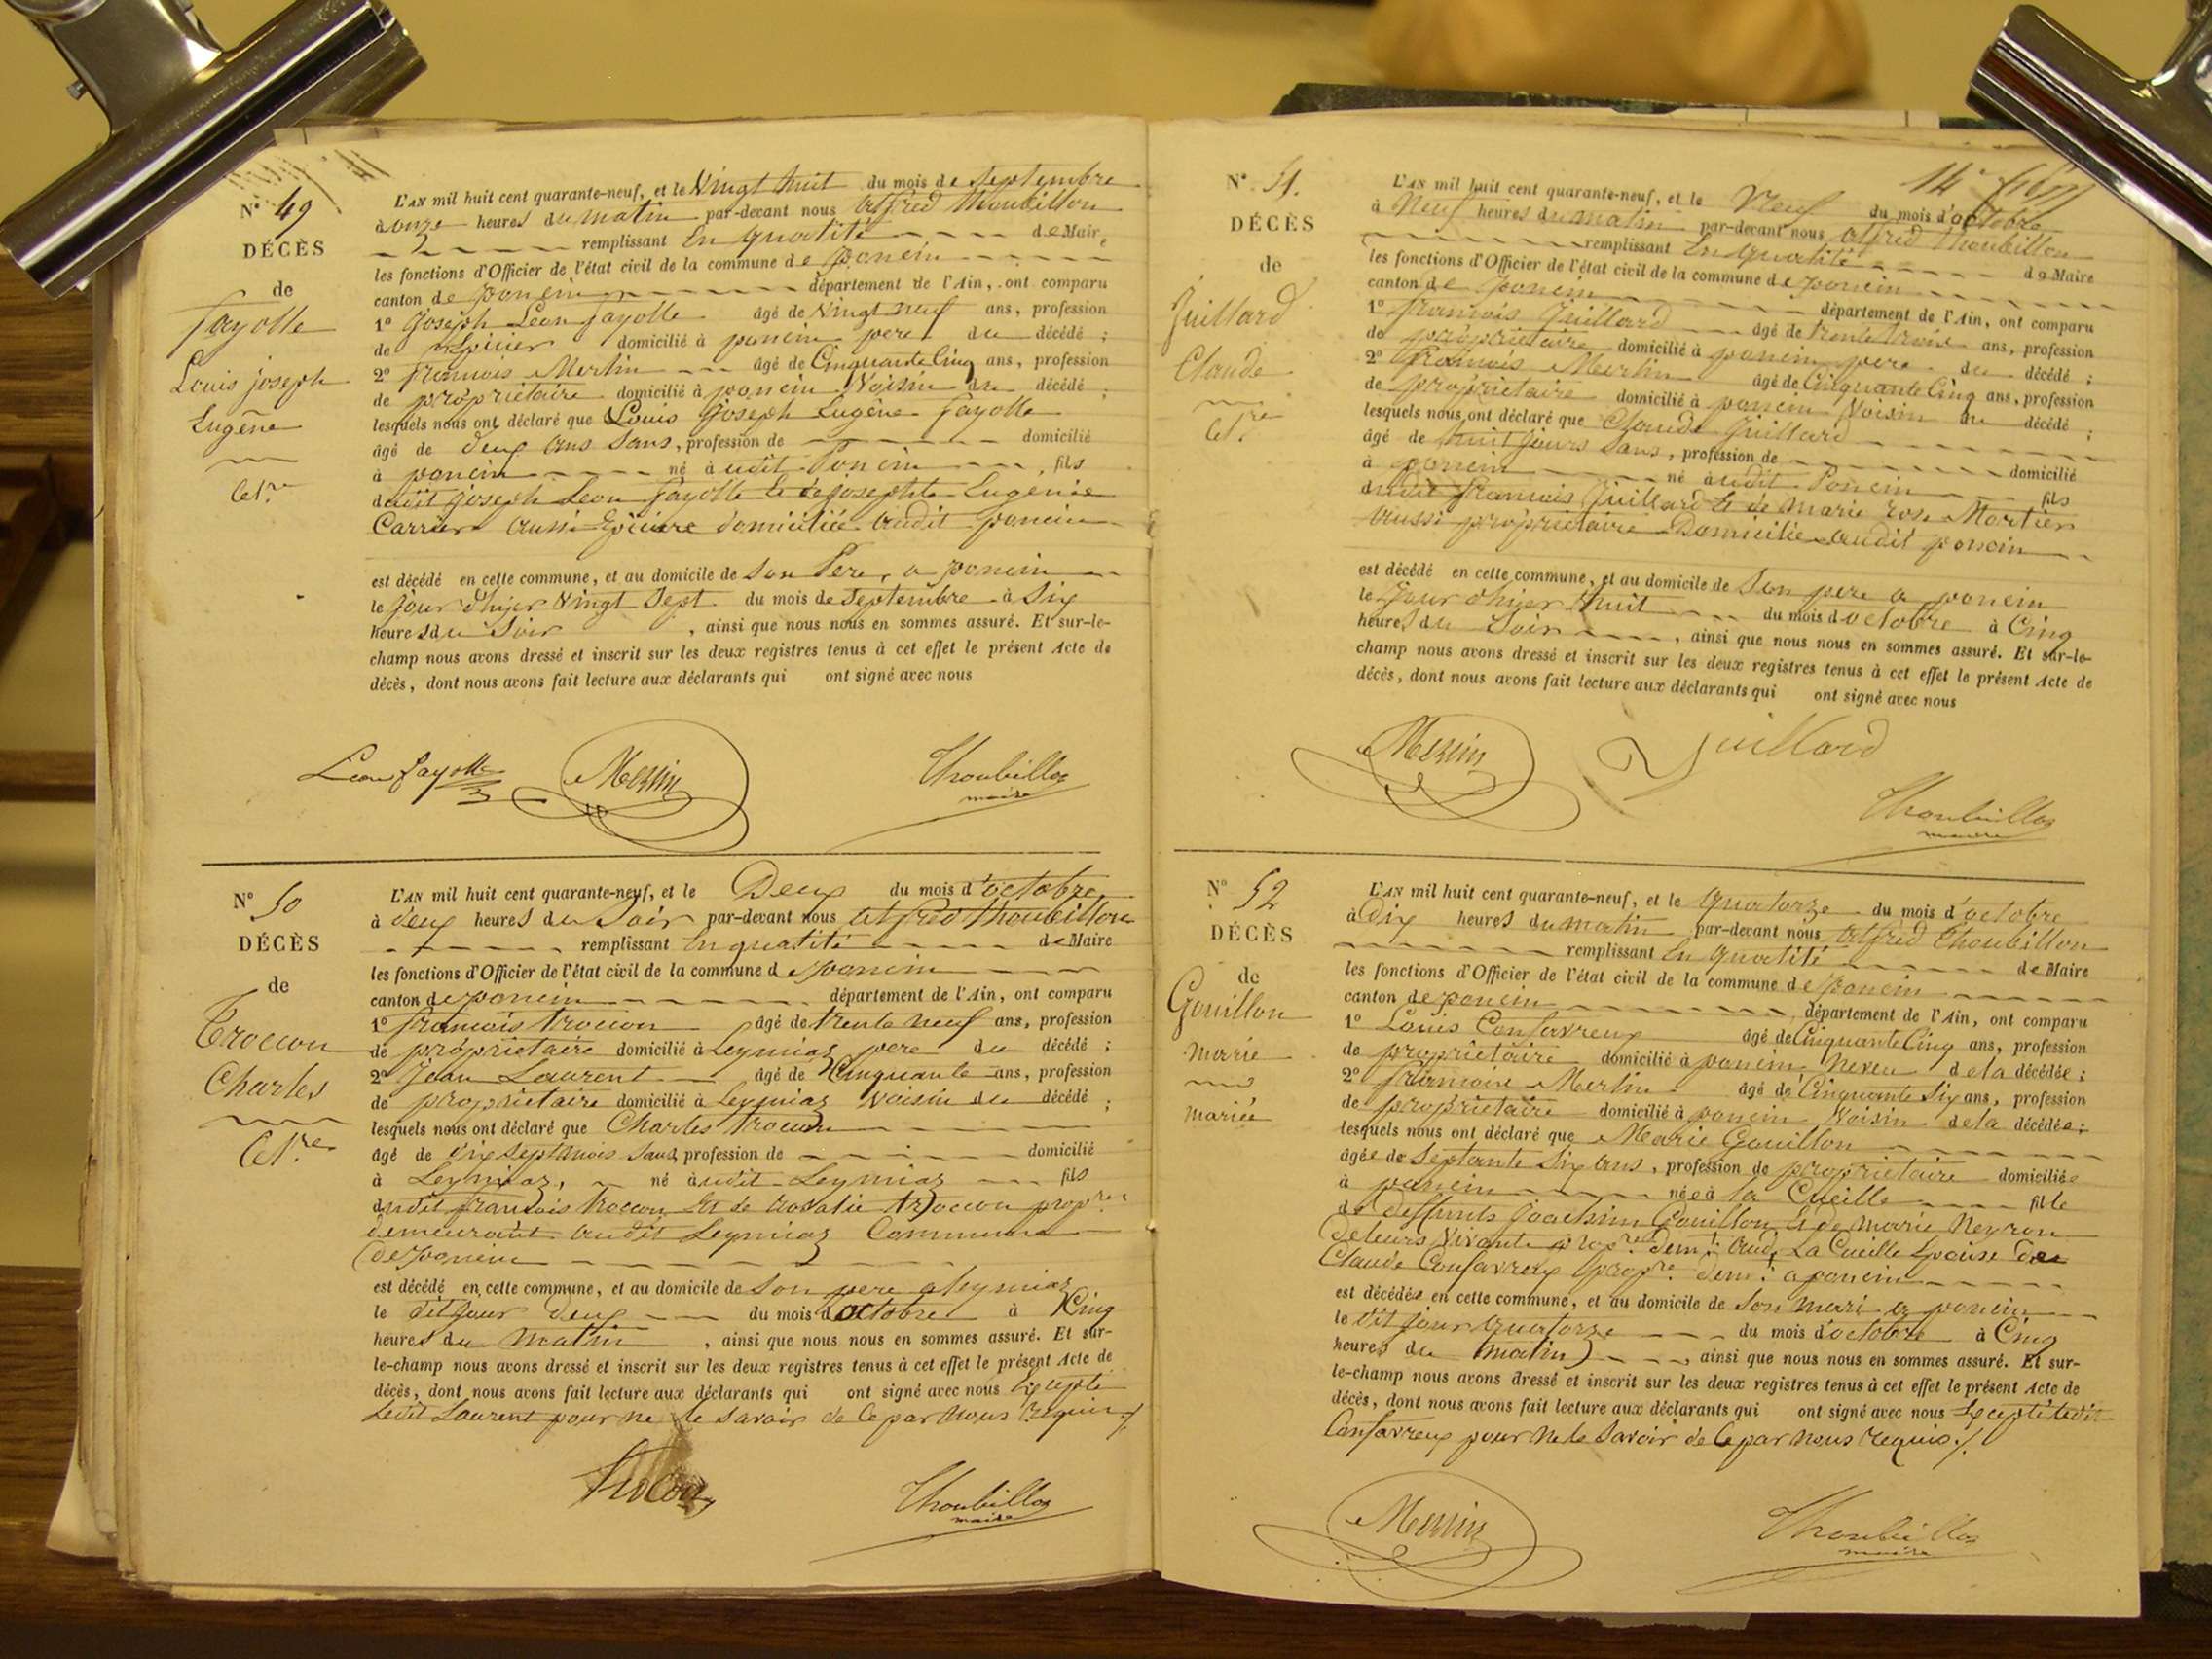 N° 49
DÉCÈS
de
Fayolle
Louis joseph
Eugène
Cel.re
L'AN mil huit cent quarante-neuf, et le Vingt huit du mois de Septembre
à onze heures du matin par-devant nous Alfred Thoubillon
remplissant En qualité de Maire
les fonctions d'Officier de l'état civil de la commune de poncin
canton de poncin département de l'Ain, ont comparu
1° Joseph Leon fayolle âgé de Vingt neuf ans, profession
de Epicier domicilié à poncin pere du décédé ;
2° francois Merlin âgé de Cinquante Cinq ans, profession
de propriétaire domicilié à poncin Voisin du décédé ;
lesquels nous ont déclaré que Louis Joseph Eugène fayolle
âgé de deux ans Sans, profession de domicilié
à poncin né audit Poncin , fils
dudit joseph Leon fayolle Et de josephte Eugénie
Carrier aussi Epiciere domiciliée audit poncin
est décédé en cette commune, et au domicile de Son Pere, a poncin
le jour d'hier Vingt Sept du mois de Septembre à Six
heures du Soir , ainsi que nous nous en sommes assuré. Et sur-le-
champ nous avons dressé et inscrit sur les deux registres tenus à cet effet le présent Acte de
décès, dont nous avons fait lecture aux déclarants qui ont signé avec nous
Leon fayolle Merlin Thoubillon
maire
N° 50
DÉCÈS
de
Troccon
Charles
Cel.re
L'AN mil huit cent quarante-neuf, et le Deux du mois d'octobre
à deux heures du Soir par-devant nous Alfred Thoubillon
remplissant En qualité de Maire
les fonctions d'Officier de l'état civil de la commune de poncin
canton de poncin département de l'Ain, ont comparu
1° francois troccon âgé de trente neuf ans, profession
de propriétaire domicilié à Leymiaz pere du décédé ;
2° Jean Laurent âgé de Cinquante ans, profession
de propriétaire domicilié à Leymiaz Voisin du décédé ;
lesquels nous ont déclaré que Charles troccon
âgé de dix Sept mois Sans, profession de domicilié
à Leymiaz, né audit Leymiaz fils
dudit francois troccon Et de rosalie troccon prop.res
demeurant audit Leymiaz Commune
de poncin
est décédé en cette commune, et au domicile de Son pere a leymiaz
le dit jour deux du mois d'octobre à Cinq
heures du Matin , ainsi que nous nous en sommes assuré. Et sur-
le-champ nous avons dressé et inscrit sur les deux registres tenus à cet effet le présent Acte de
décès, dont nous avons fait lecture aux déclarants qui ont signé avec nous Excepté
Ledit Laurent pour ne le Savoir de Ce par nous requis ./.
Trocon Thoubillon
maire
N° 51.
DÉCÈS
de
Juillard
Claude
Cel.re
L'AN mil huit cent quarante-neuf, et le Neuf du mois d'octobre
à Neuf heures du matin par-devant nous Alfred Thoubillon
remplissant En qualité de Maire
les fonctions d'Officier de l'état civil de la commune de poncin
canton de poncin département de l'Ain, ont comparu
1° francois Juillard âgé de trente trois ans, profession
de propriétaire domicilié à poncin pere du décédé ;
2° francois Merlin âgé de Cinquante Cinq ans, profession
de propriétaire domicilié à poncin Voisin du décédé ;
lesquels nous ont déclaré que Claude Juillard
âgé de huit jours Sans, profession de domicilié
à poncin né audit Poncin fils
dudit francois Juillard Et de Marie rose Mortier
aussi propriétaire Domiciliée audit poncin
est décédé en cette commune, et au domicile de Son pere a poncin
le jour d'hier huit du mois d'octobre à Cinq
heures du Soir , ainsi que nous nous en sommes assuré. Et sur-le-
champ nous avons dressé et inscrit sur les deux registres tenus à cet effet le présent Acte de
décès, dont nous avons fait lecture aux déclarants qui ont signé avec nous
Merlin Juillard
Thoubillon
maire
N° 52
DÉCÈS
de
Gouillon
Marie
mariée
L'AN mil huit cent quarante-neuf, et le quatorze du mois d'octobre
à Dix heures du matin par-devant nous Alfred Thoubillon
remplissant En qualité de Maire
les fonctions d'Officier de l'état civil de la commune de poncin
canton de poncin département de l'Ain, ont comparu
1° Louis Confavreux âgé de Cinquante Cinq ans, profession
de propriétaire domicilié à poncin Neveu de la décédée ;
2° francois Merlin âgé de Cinquante Six ans, profession
de propriétaire domicilié à poncin Voisin de la décédée ;
lesquels nous ont déclaré que Marie Gouillon
âgée de Septante Six ans, profession de propriétaire domiciliée
à poncin née à la Cueille fille
de deffunts joachim Gouillon Et de marie Neyron
de leurs Vivants prop.res dem.t aud. La Cueille Epouse de
Claude Confavreux prop.re dem.t a poncin
est décédée en cette commune, et au domicile de Son mari a poncin
le dit jour quatorze du mois d'octobre à Cinq
heures du matin , ainsi que nous nous en sommes assuré. Et sur-
le-champ nous avons dressé et inscrit sur les deux registres tenus à cet effet le présent Acte de
décès, dont nous avons fait lecture aux déclarants qui ont signé avec nous Excepté ledit
Confavreux pour ne le Savoir de Ce par nous requis ./.
Merlin Thoubillon
maire